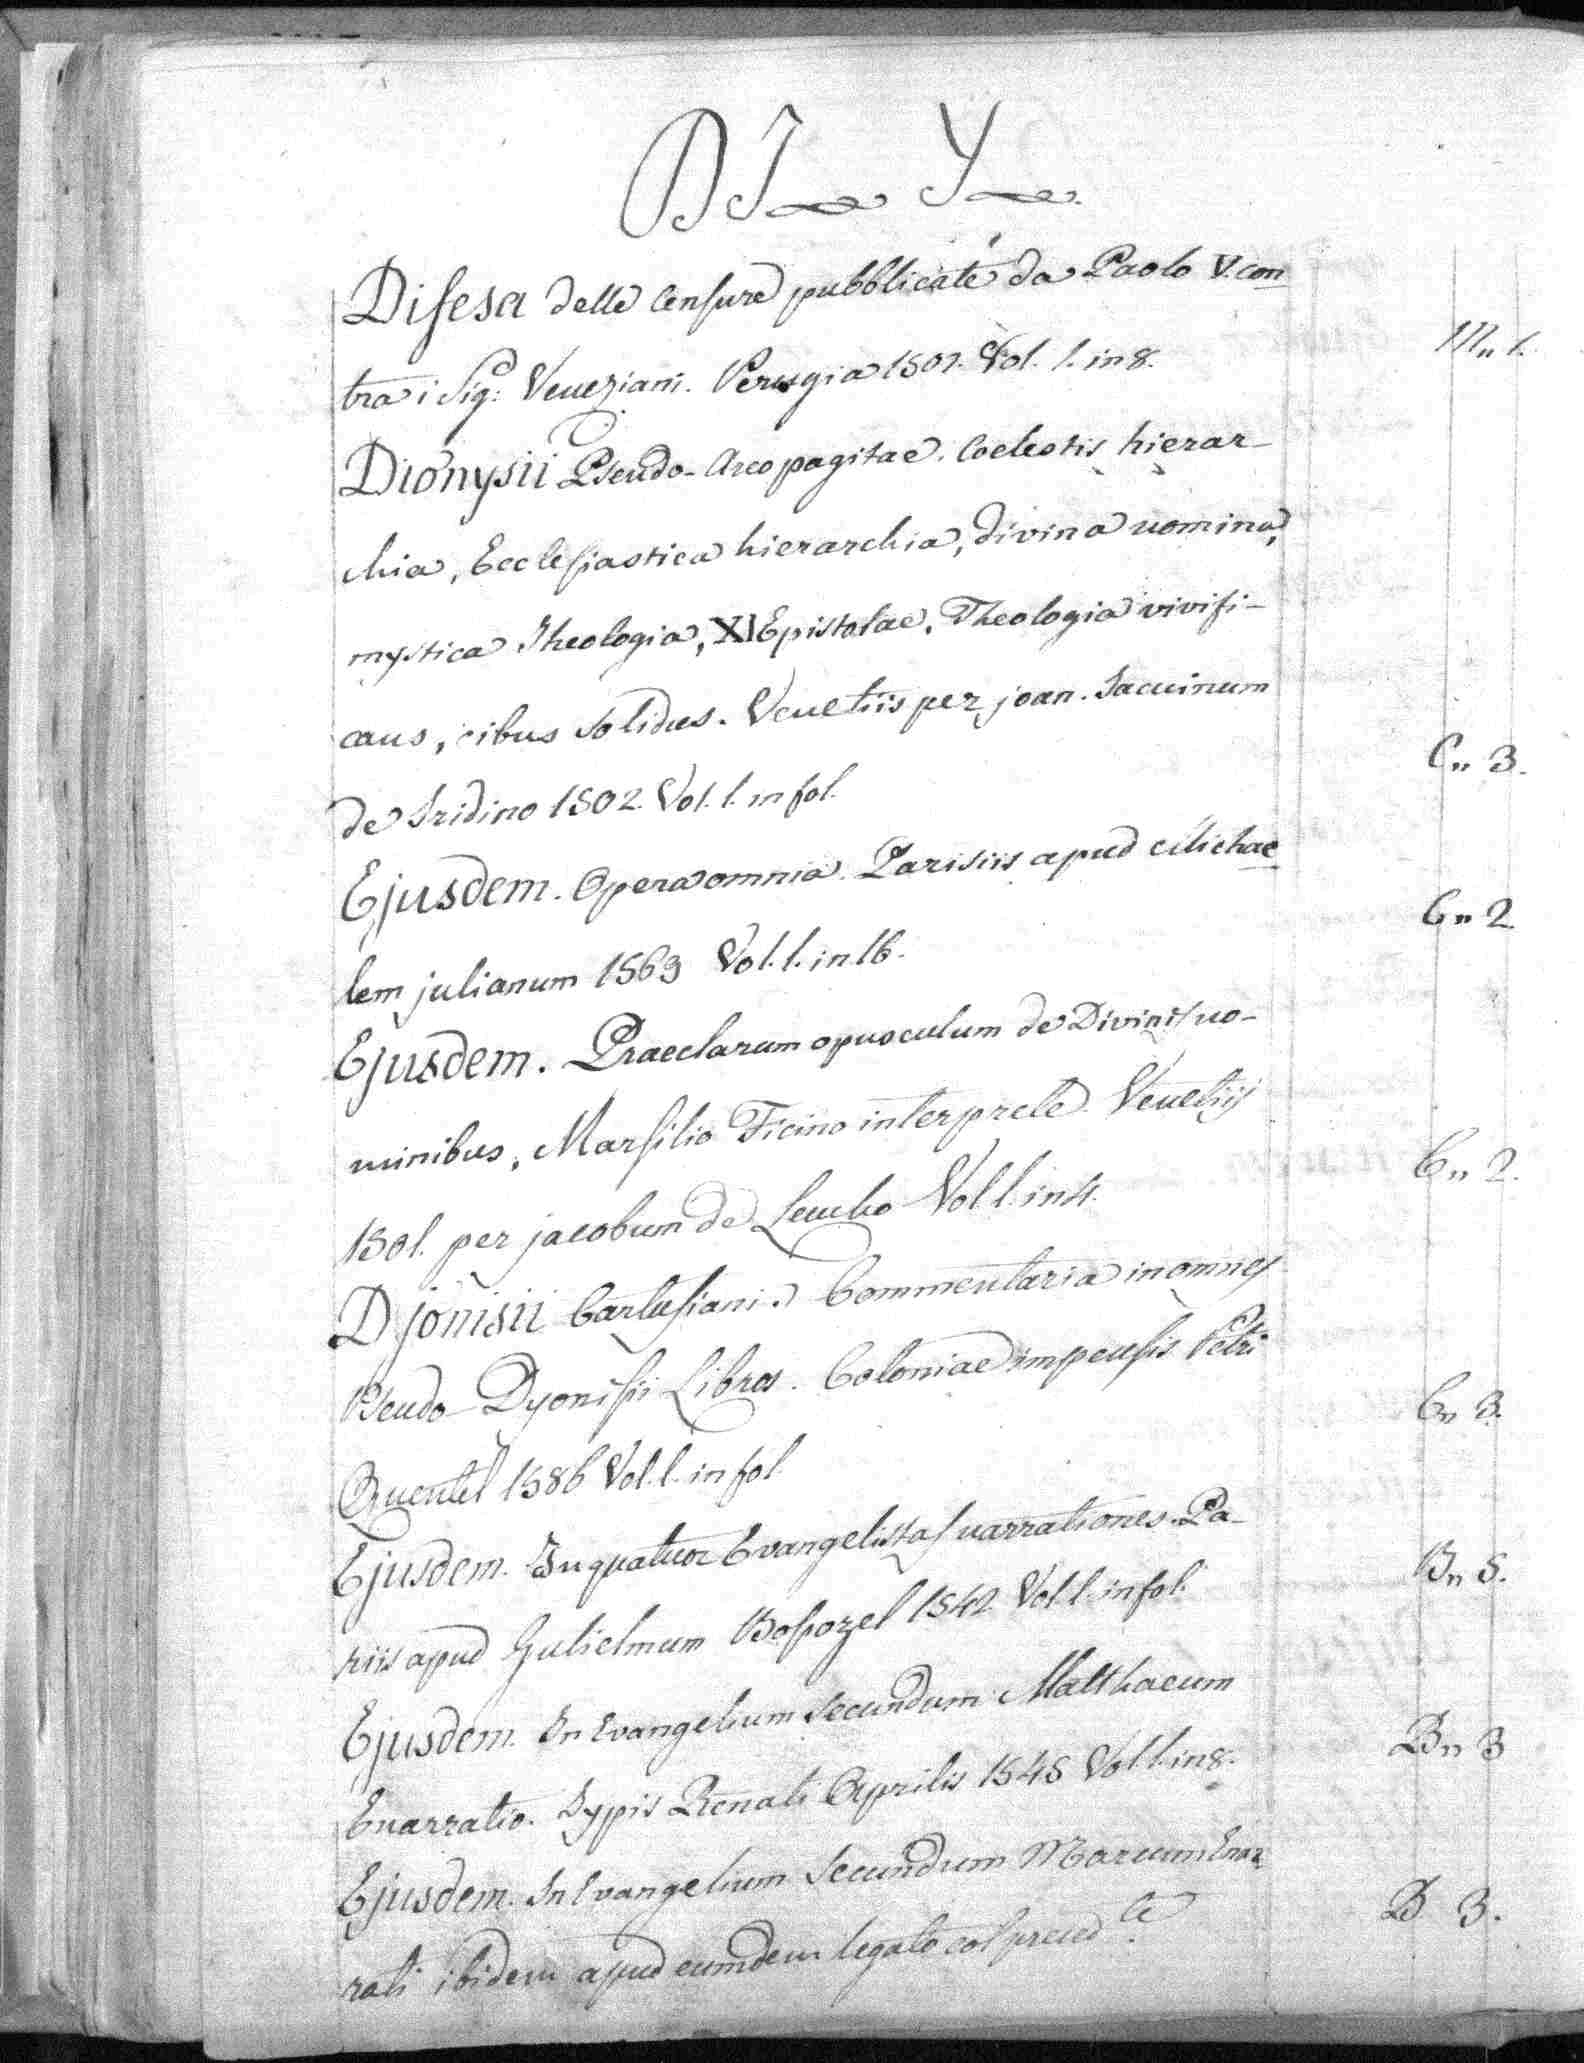 DI Y
Difesa delle Censure pubblicate da Paolo V. con
tra i Sig: Veneziani. Perugia 1507. Vol. 1. in 8. M,, 1.
Dionysii Pseudo-Areopagitae. Coelestis hierar-
chia, Ecclesiastica hierarchia, divina nomina,
mystica Theologia, XI Epistolae. Theologia vivifi-
cans, cibus solidus. Venetiis per joan. Tacuinum
de Tridino 1502. Vol. 1. in fol. C,, 3.
Ejusdem. Opera omnia. Parisiis apud Michae
lem julianum 1569 Vol. 1. in 16. C,, 2.
Ejusdem. Praeclarum opusculum de Divinis no-
minibus, Marsilio Ficino interprete. Venetiis
1501. per jacobum de Leucho Vol 1. in 4. C,, 2.
Djonisii Cartusiani. Commentaria in omnes
Pseudo-Dyonisii Libros. Coloniae impensis Petri
Quentel 1586 Vol. 1. in fol. C,, 3.
Ejusdem. In quatuor Evangelistas narrationes. Pa-
riis apud Gulielmum Bosozel 1542 Vol. 1. in fol. B,, 5.
Ejusdem. In Evangelium secundum Matthaeum
Enarratio. Typis Renati Aprilis 1545 Vol 1. in 8. B,, 3
Ejusdem. In Evangelium secundum Marcum Enar
rati ibidem apud eumdem legato col preced.te B 3.